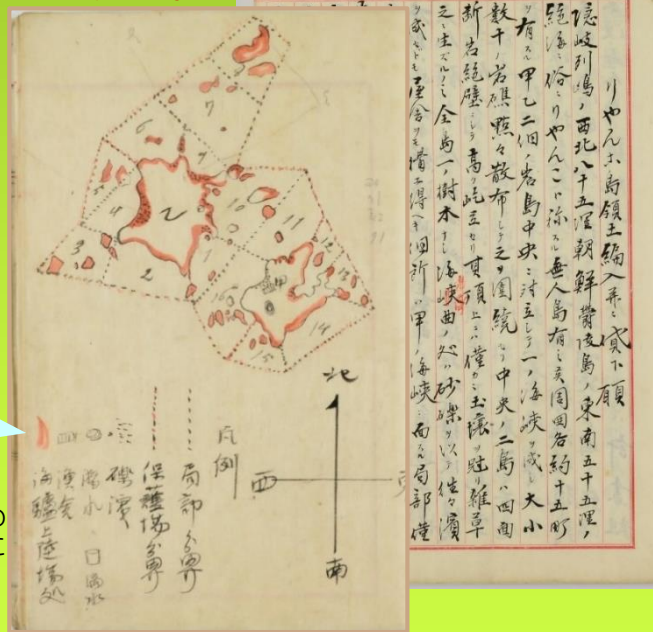 りやんこ島領土編入并ニ貸下願
隠岐列島ノ西北八十五浬朝鮮欝陵島ノ東南五十五浬ノ
絶海ニ俗ニりやんこト称スル無人島有之候周囲各約十五町
ヲ有スル甲乙二個ノ岩島中央ニ対立シテ一ノ海峡ヲ成シ大小
数十ノ岩礁點々散布シテ之ヲ囲繞セリ中央ノ二島ハ四面
断岩絶壁ニシテ高ク屹立セリ其頂上ニハ僅カニ土壌ヲ冠リ雑草
之ニ生ズルノミ全島一ノ樹木ナシ海峡曲ノ処ハ砂礫ヲ以テ往々濱
ヲ成セドモ屋舎ヲ構エ得ヘキ個所ハ甲ノ海峡ニ面スル局部僅
7
6
5
4
乙
9
10
11
3
2
1
12
13
甲
16
15
14
北
西
東
南
凡例
局部分界
保護場分界
礫濱
潴水 湧水
漁舎
海驢上陸場処
の
に